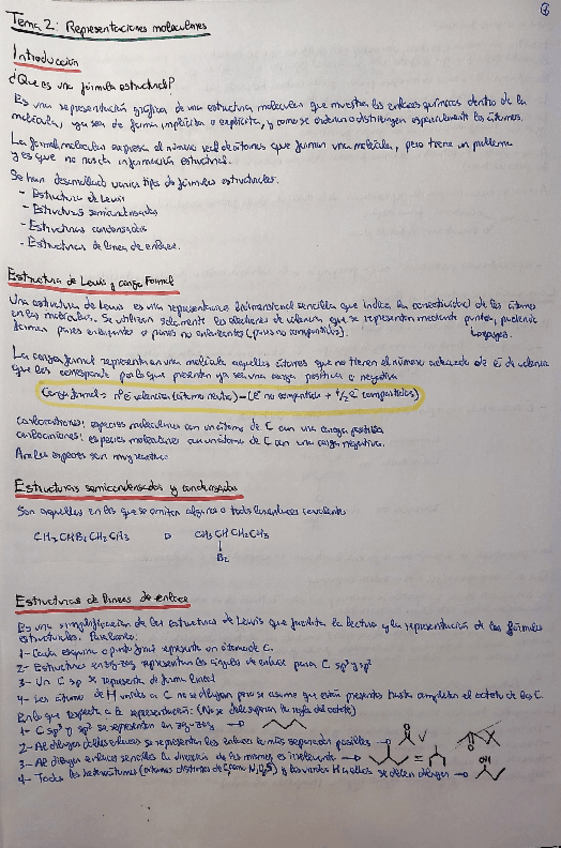 Tema 2: Representaciones moleculares
Introducción
¿Que es una fórmula estructural?
Es una representación gráfica de una estructura molecular que muestra los enlaces químicos dentro de la
molécula, ya sea de forma implícita o explícita, y como se ordenan o distribuyen espacialmente los átomos.
La fórmula molecular expresa el número real de átomos que forman una molécula, pero tiene un problema
y es que no nos da información estructural.
Se han desarrollado varios tipos de fórmulas estructurales:
- Estructura de Lewis
- Estructuras semicondensadas
- Estructuras condensadas
- Estructuras de línea de enlace.
Estructura de Lewis y carga Formal
Una estructura de Lewis es una representación bidimensional sencilla que indica la conectividad de los átomos
en las moléculas. Se utilizan solamente los electrones de valencia, que se representan mediante puntos, pudiendo
formar pares enlazantes o pares no enlazantes (pares no compartidos).
La carga formal representa en una molécula aquellos átomos que no tienen el número adecuado de e⁻ de valencia
que les corresponde por lo que presentan ya sea una carga positiva o negativa
Carga formal = nº e⁻ valencia (átomo neutro) - (e⁻ no compartidos + 1/2 e⁻ compartidos)
Carbocationes: especies moleculares con un átomo de C con una carga positiva
carbaniones: especies moleculares con un átomo de C con una carga negativa.
Ambas especies son muy reactivas
Estructuras semicondensadas y condensadas
Son aquellas en las que se omiten algunos o todos los enlaces covalentes
CH3CHBrCH2CH3 o CH3CHCH2CH3
Br
Estructuras de líneas de enlace
Es una simplificación de las estructuras de Lewis que facilita la lectura y la representación de las fórmulas
estructurales. Para ello:
1- Cada esquina o punto final representa un átomo de C.
2- Estructuras en zig-zag representan los ángulos de enlace para C sp³ y sp²
3- Un C sp se representa de forma lineal
4- Los átomos de H unidos a C no se dibujan pero se asume que están presentes hasta completar el octeto de los C.
En lo que respecta a la representación: (No se debe superar la regla del octeto)
1- C sp³ y sp² se representan en zig-zag →
2- Al dibujar dobles enlaces se representan los enlaces lo más separados posibles → O
3- Al dibujar enlaces sencillos la dirección de los mismos es irrelevante → =
4- Todos los heteroátomos (átomos distintos de C, como N, O, S) y los H unidos a ellos se deben dibujar → OH